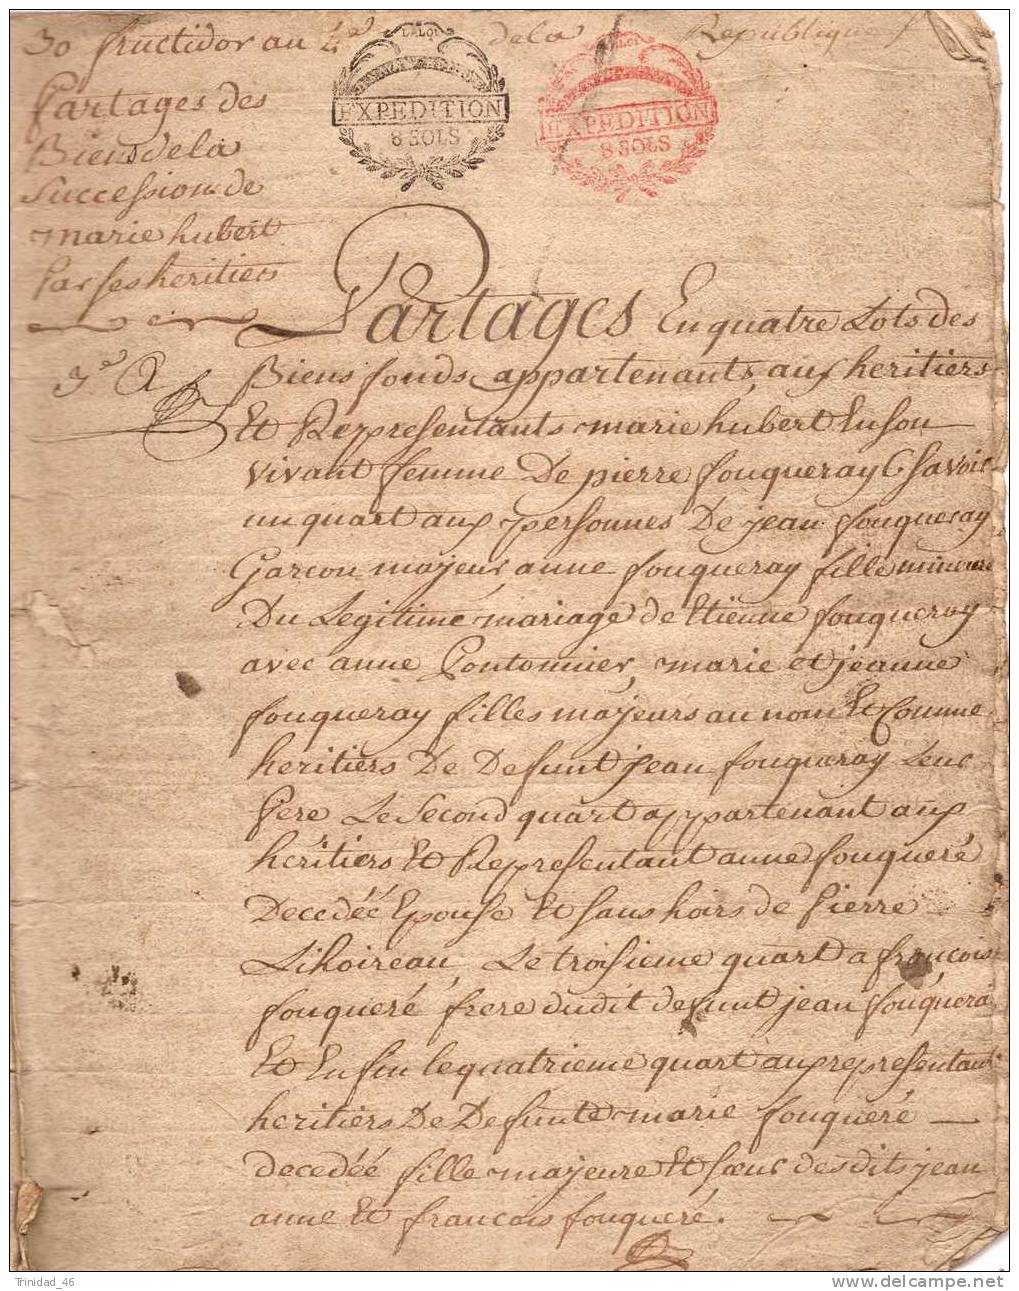 30 fructidor an 4e de la Republique f
Partages des
Biens de la
Succession de
marie hubert
Par ses heritiers
LALOI
EXPEDITION
8 SOLS
LALOI
EXPEDITION
8 SOLS
3e
Partages En quatre Lots des
Biens fonds appartenants aux heritiers
Et Representants marie hubert En son
vivant femme De pierre fouqueray Scavoir
un quart aux personnes De jean fouqueray
Garcon majeur, anne fouqueray fille mineure
Du Legitime mariage de Etienne fouqueray
avec anne Pontonnier, marie et jeanne
fouqueray filles majeurs au nom Et Comme
heritiers De Defunt jean fouqueray Leur
Pere Le Second quart appartenant aux
heritiers Et Representant anne fouqueré
Decedéé Epouse Et sans hoirs de Pierre
Lihoireau, Le troisieme quart a francois
fouqueré frere dudit defunt jean fouqueré
Et Enfin le quatrieme quart aux representants
heritiers De Defunte marie fouqueré
decedéé fille majeure Et soeur des dits jean
anne Et francois fouqueré.
Trinidad_46
www.delcampe.net